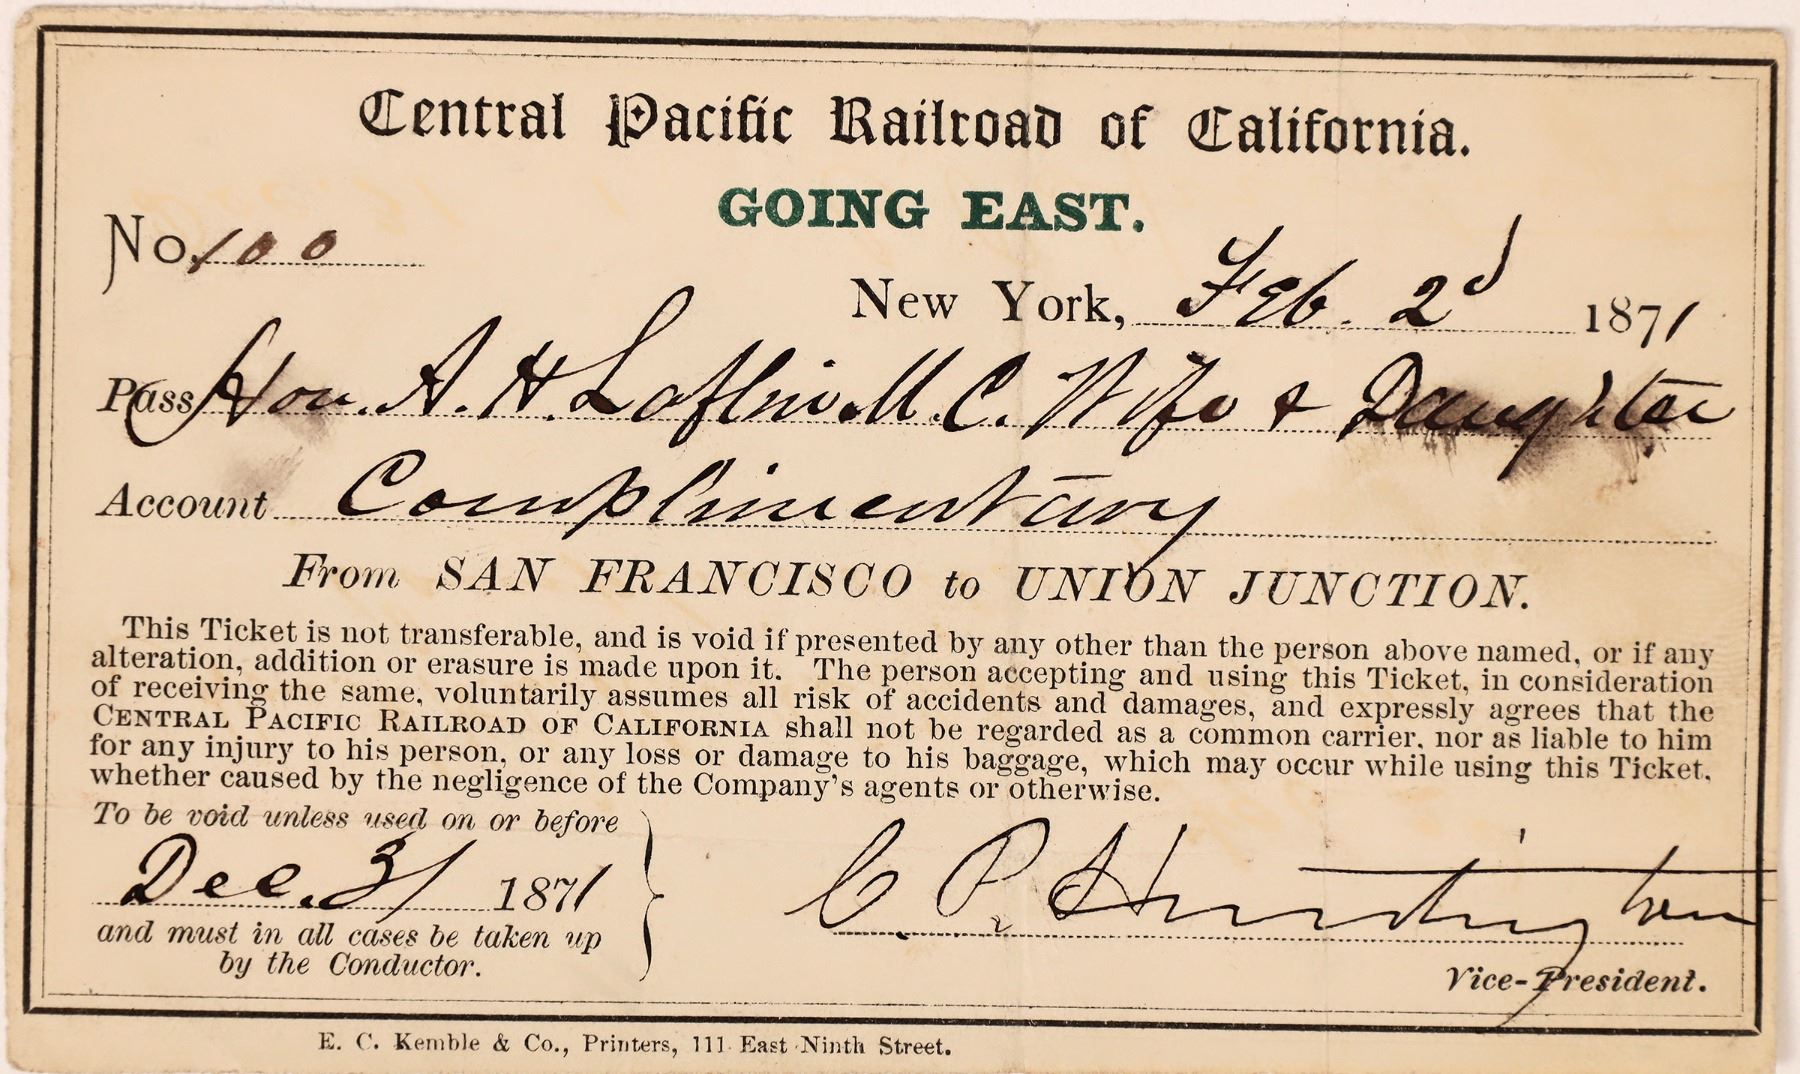 Central Pacific Railroad of California.
GOING EAST.
No. 100
New York, Feb. 2d 1871
Pass Hon. A. H. Laflin M. C. Wife & Daughter
Account Complimentary
From SAN FRANCISCO to UNION JUNCTION.
This Ticket is not transferable, and is void if presented by any other than the person above named, or if any
alteration, addition or erasure is made upon it. The person accepting and using this Ticket, in consideration
of receiving the same, voluntarily assumes all risk of accidents and damages, and expressly agrees that the
CENTRAL PACIFIC RAILROAD OF CALIFORNIA shall not be regarded as a common carrier, nor as liable to him
for any injury to his person, or any loss or damage to his baggage, which may occur while using this Ticket,
whether caused by the negligence of the Company's agents or otherwise.
To be void unless used on or before
Dec. 31 1871
and must in all cases be taken up
by the Conductor.
C. P. Huntington
Vice-President.
E. C. Kemble & Co., Printers, 111 East Ninth Street.